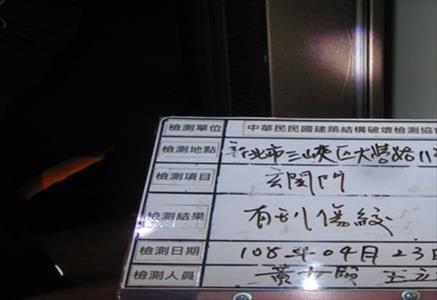 檢測單位 中華民民國建築結構破壞檢測協會
檢測地點 新北市三峽區大學路11
檢測項目 玄関門
檢測結果 有刮傷紋
檢測日期 108年04月23日
檢測人員 黃